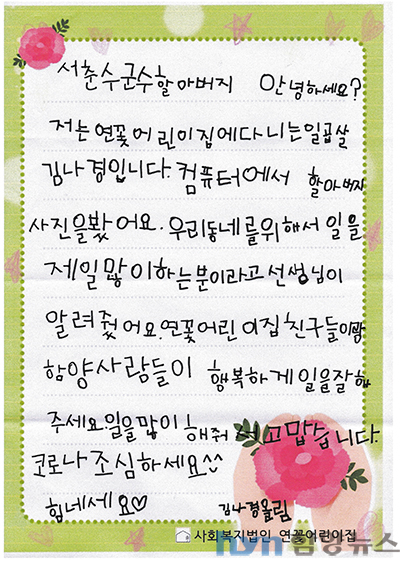 서춘수군수할아버지 안녕하세요?
저는연꽃어린이집에다니는일곱살
김나경입니다. 컴퓨터에서 할아버지
사진을봤어요. 우리동네를위해서 일을
제일많이하는분이라고선생님이
알려줬어요.연꽃어린이집친구들이랑
함양사람들이 행복하게일을잘해
주세요.일을많이해줘서고맙습니다.
코로나조심하세요^^
힘네세요♡ 김나경올림
사회복지법인 연꽃어린이집
hyn함양뉴스